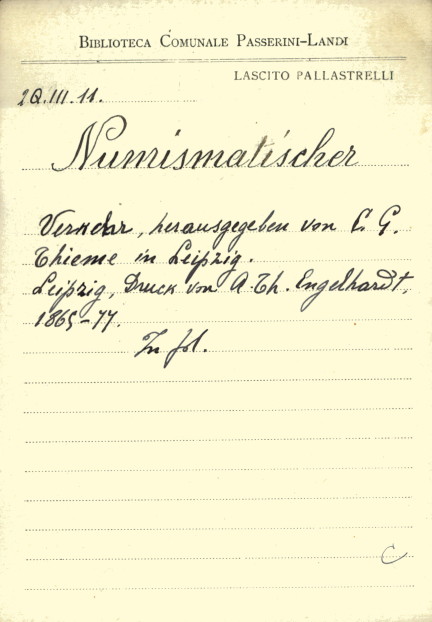 BIBLIOTECA COMUNALE PASSERINI-LANDI
LASCITO PALLASTRELLI
2Q.III.11.
Numismatischer
Verkehr, herausgegeben von C. G.
Thieme in Leipzig.
Leipzig, Druck von A. Th. Engelhardt,
1865-77.
In fol.
C